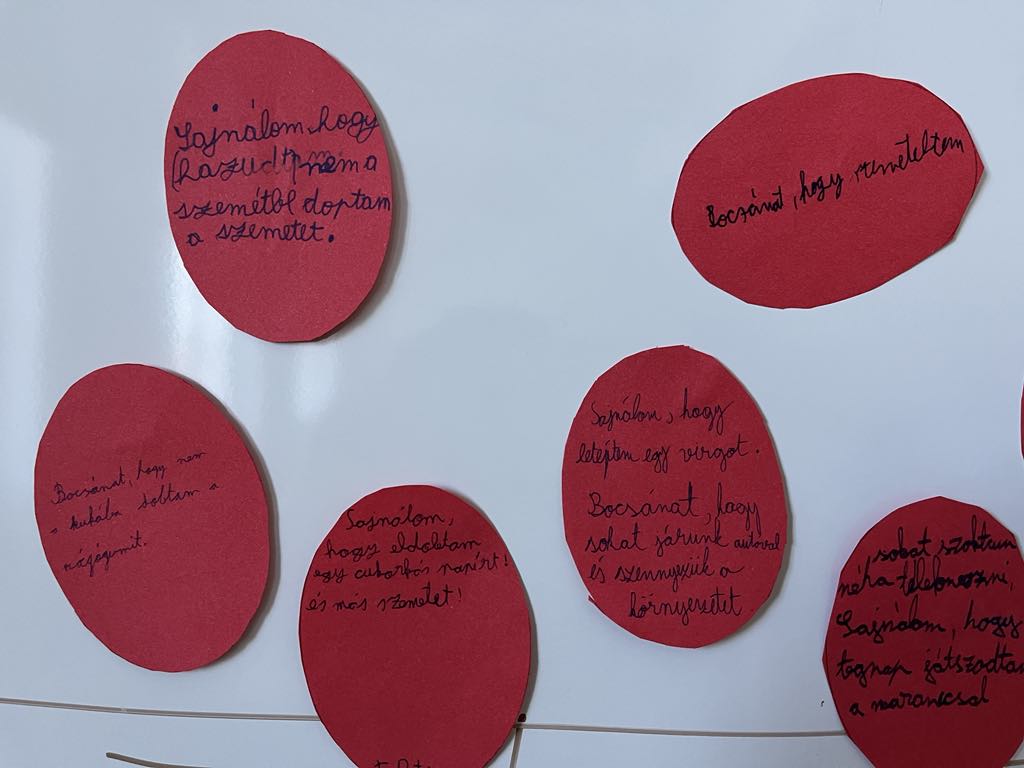 Sajnálom, hogy
hazudtam nem a
szemétből doptam
a szemetet.
Bocsánat, hogy
Bocsánat, hogy nem
a kukába dobtam a
rágógumit.
Sajnálom,
hogy eldobtam
egy cukorkás papírt!
és más szemetet!
Sajnálom, hogy
letéptem egy virgot.
Bocsánat, hogy
sokat járunk autóval
és szennyezük a
környezetet
sokat szoktunk
néha telefonozni,
Sajnálom, hogy
tegnap játszodtam
a naranccsal